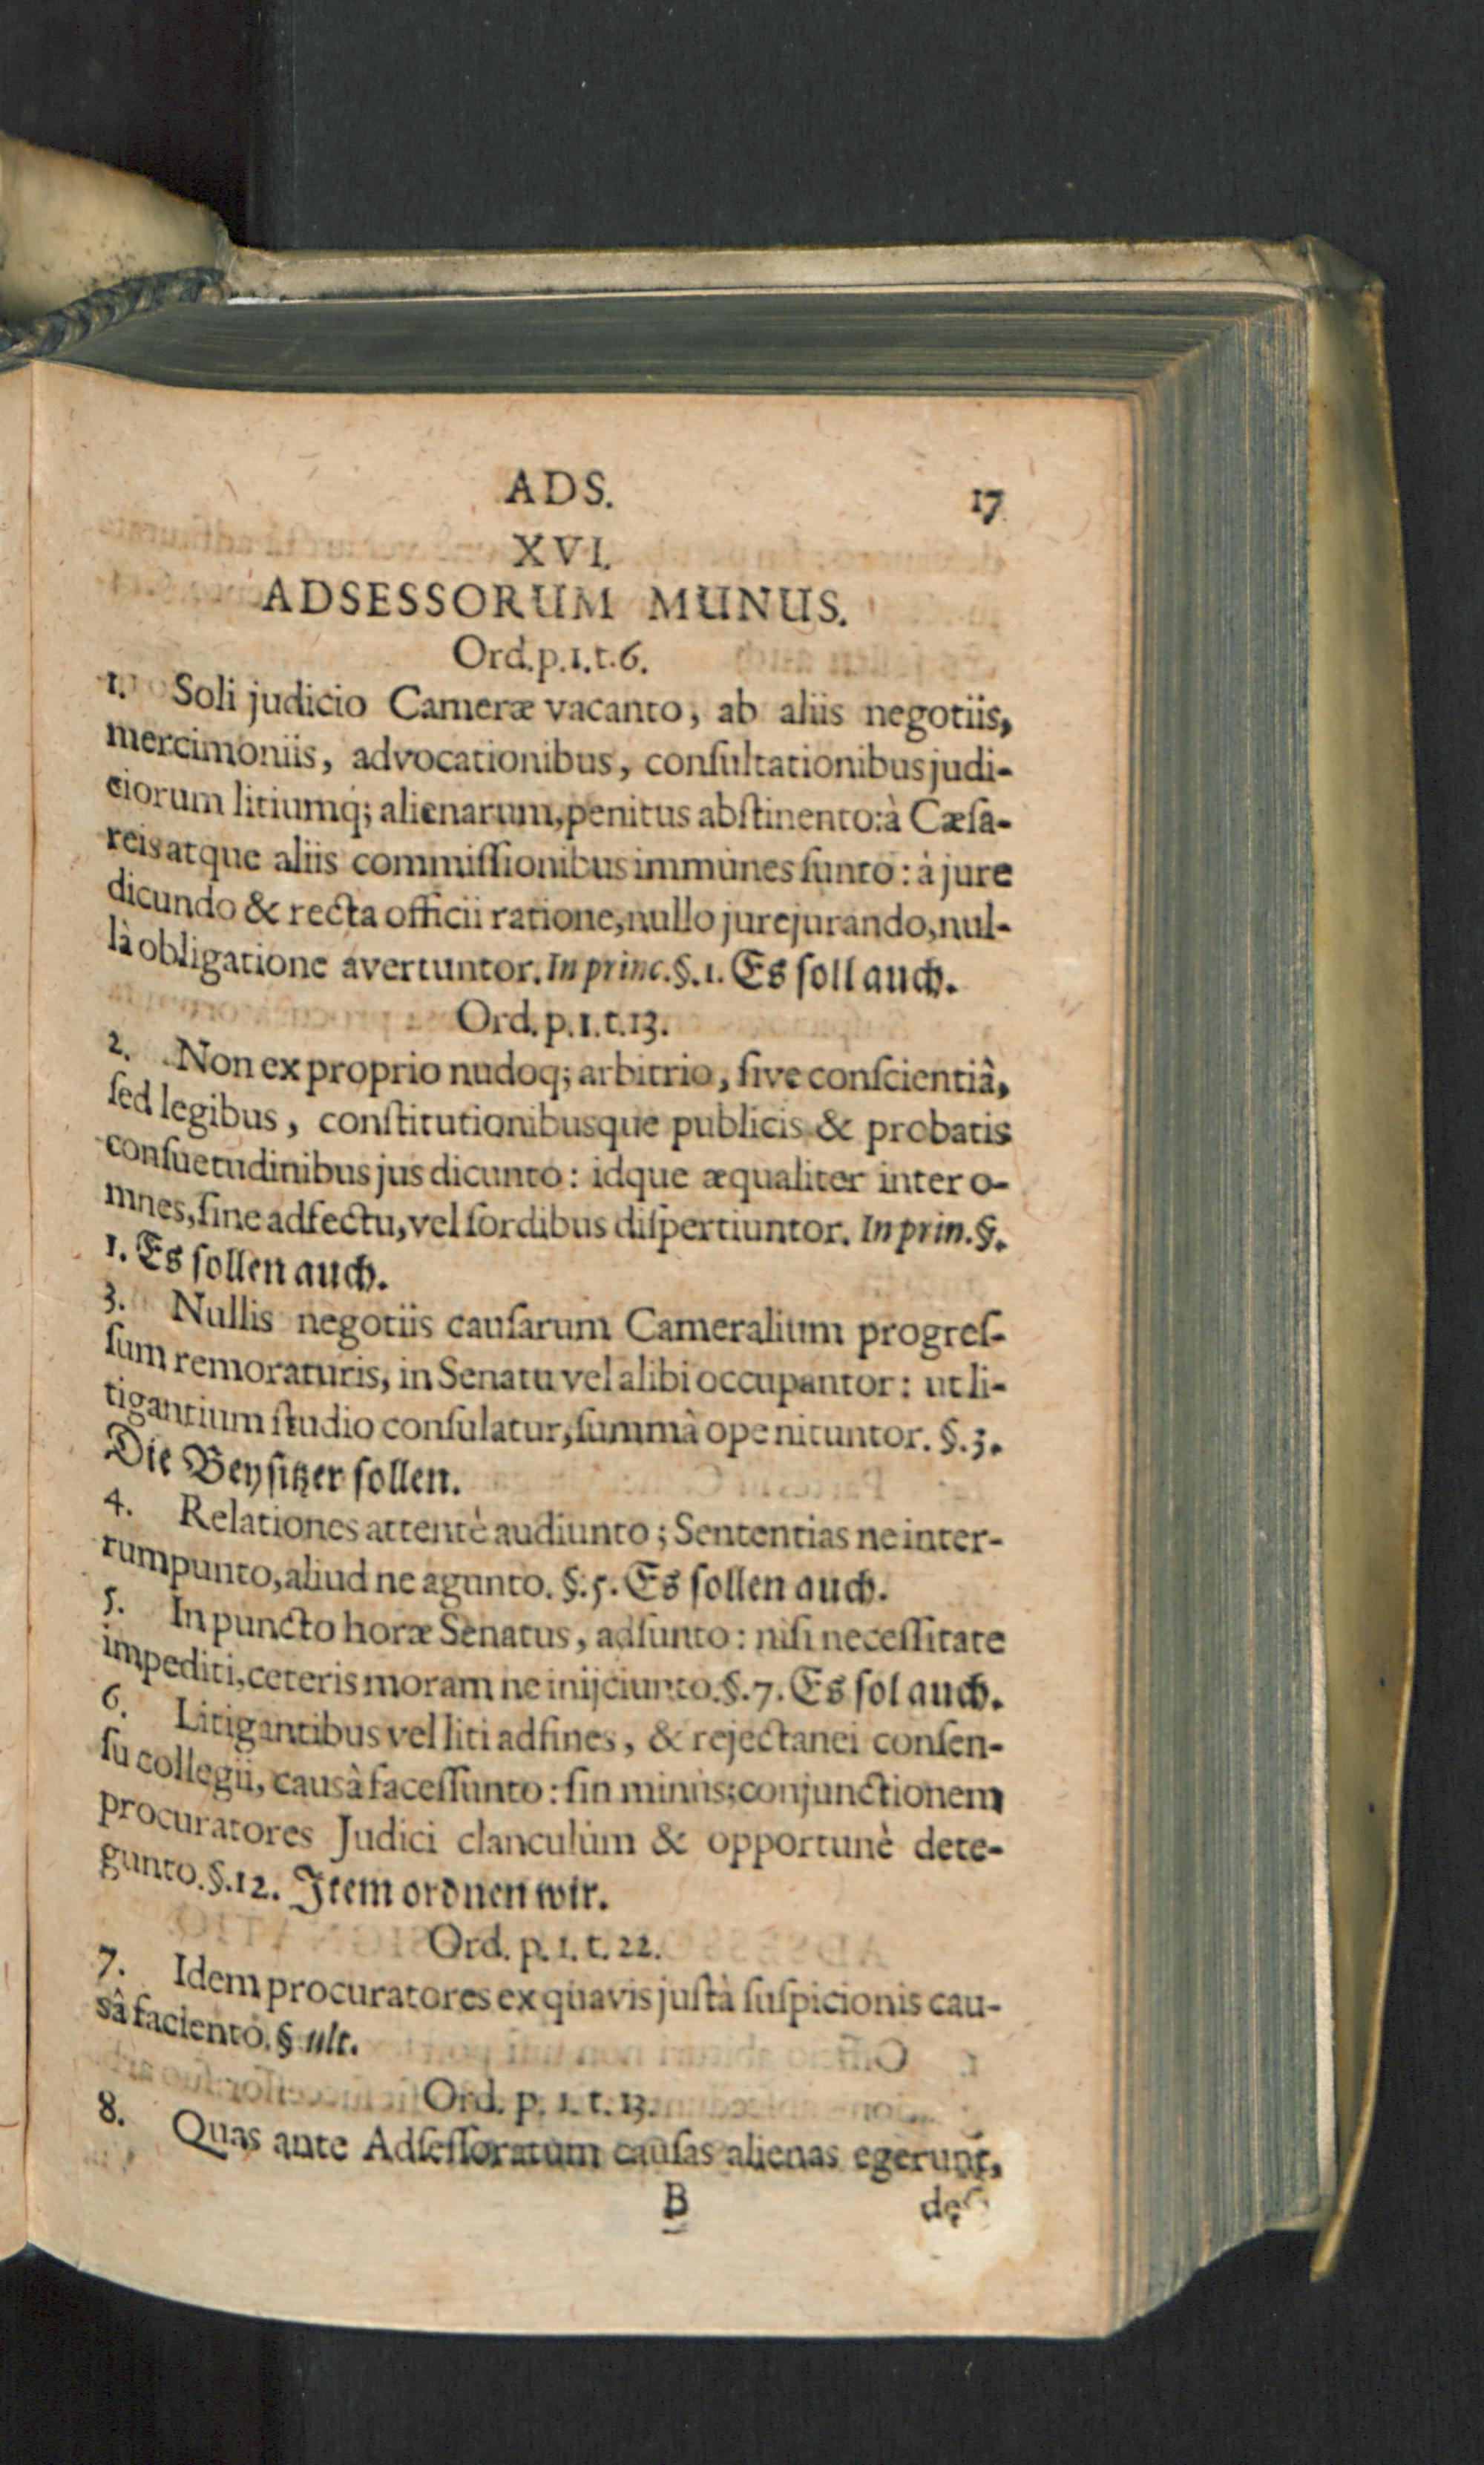 ADS. 17
XVI.
ADSESSORUM MUNUS.
Ord.p.1.t.6.
1. Soli judicio Cameræ vacanto, ab aliis negotiis,
mercimoniis, advocationibus, conſultationibus judi-
ciorum litiumq́; alienarum, penitus abſtinento: à Cæſa-
reis atque aliis commiſſionibus immunes ſunto: à jure
dicundo & recta officii ratione, nullo jurejurando, nul-
lâ obligatione avertuntor. In princ. §.1. Es ſoll auch.
Ord.p.1.t.13.
2. Non ex proprio nudoq; arbitrio, ſive conſcientiâ,
ſed legibus, conſtitutionibusque publicis & probatis
conſuetudinibus jus dicunto: idque æqualiter inter o-
mnes, ſine adfectu, vel ſordibus diſpertiuntor. In prin. §.
1. Es ſollen auch.
3. Nullis negotiis cauſarum Cameralium progreſ-
ſum remoraturis, in Senatu vel alibi occupantor: ut li-
tigantium ſtudio conſulatur, ſummâ ope nituntor. §.3.
Die Beyſitzer ſollen.
4. Relationes attentè audiunto; Sententias ne inter-
rumpunto, aliud ne agunto. §.5. Es ſollen auch.
5. In puncto horæ Senatus, adſunto: niſi neceſſitate
impediti, ceteris moram ne inijciunto. §.7. Es ſol auch.
6. Litigantibus vel liti adfines, & rejectanei conſen-
ſu collegii, causâ faceſſunto: ſin minùs; conjunctionem
procuratores Judici clanculùm & opportunè dete-
gunto. §.12. Item ordnen wir.
Ord. p. 1. t. 22.
7. Idem procuratores ex quavis juſtâ ſuſpicionis cau-
sâ faciento. § ult.
Ord. p. 1. t. 13.
8. Quas ante Adſeſſoratum cauſas alienas egerunt,
B